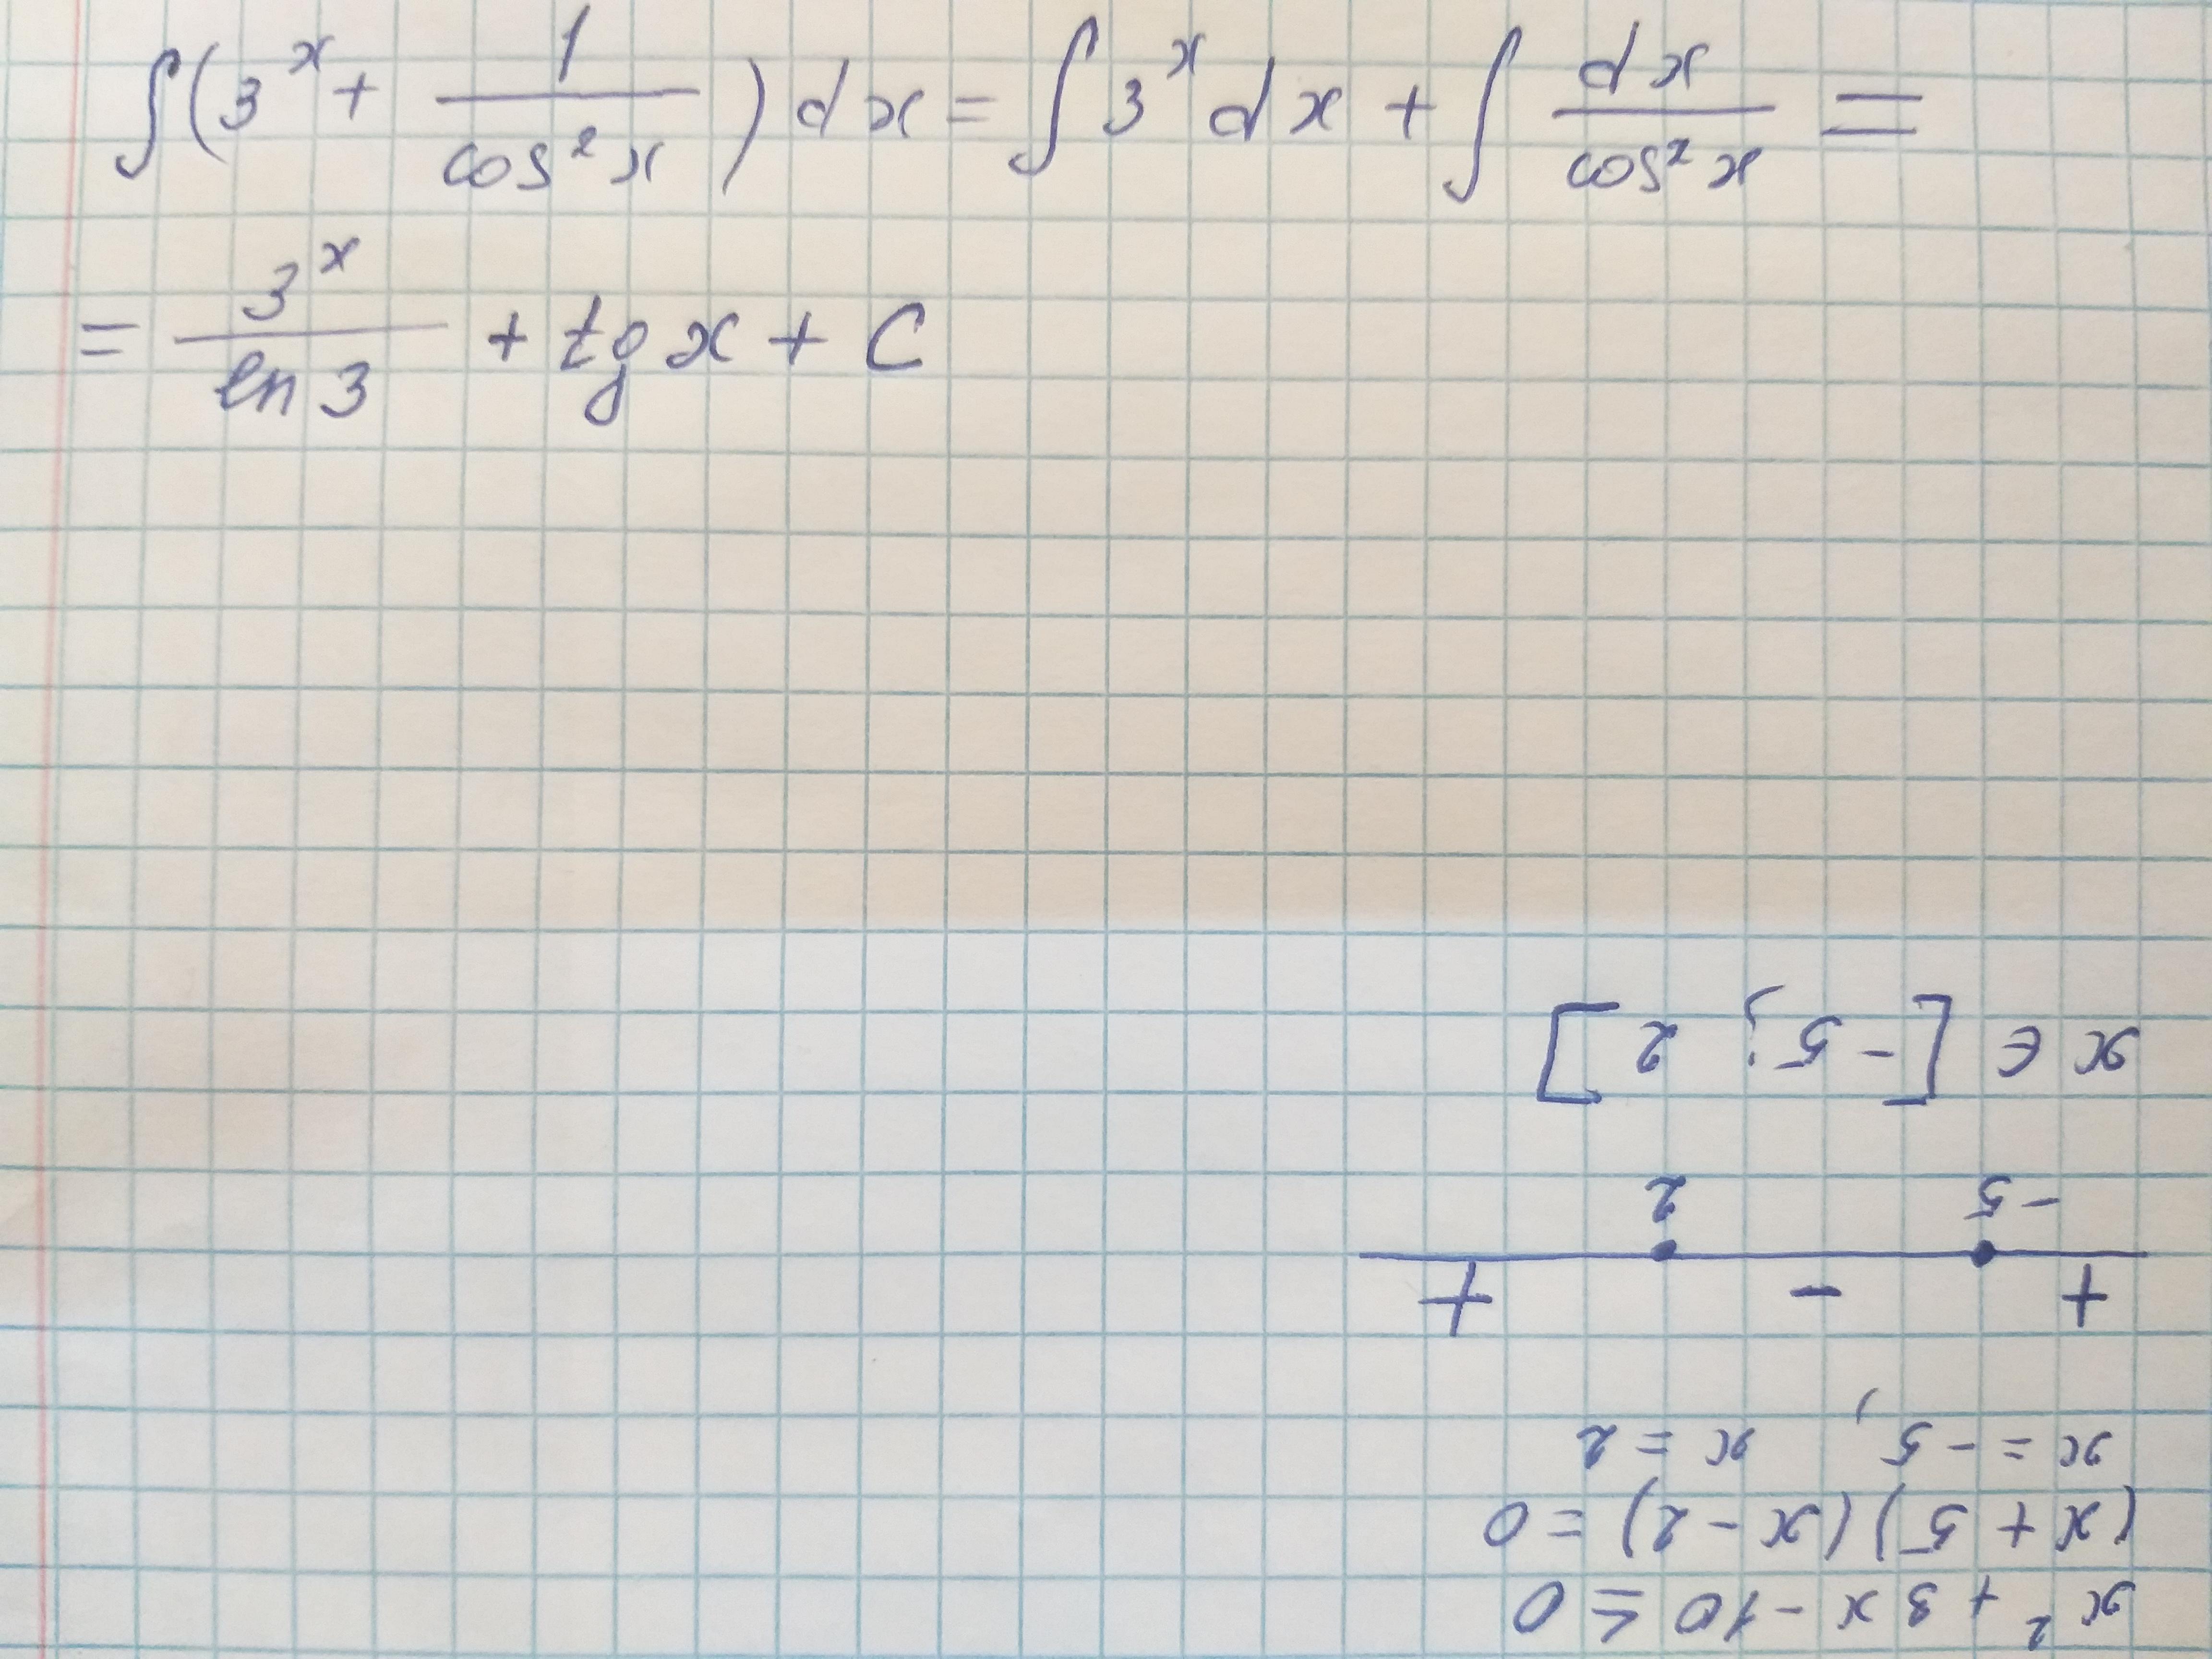 ∫(3^x + 1/cos²x)dx = ∫3^x dx + ∫dx/cos²x =
= 3^x/ln 3 + tg x + C
x² + 3x - 10 ≤ 0
(x + 5)(x - 2) = 0
x = -5, x = 2
+ - +
-5 2
x ∈ [-5; 2]